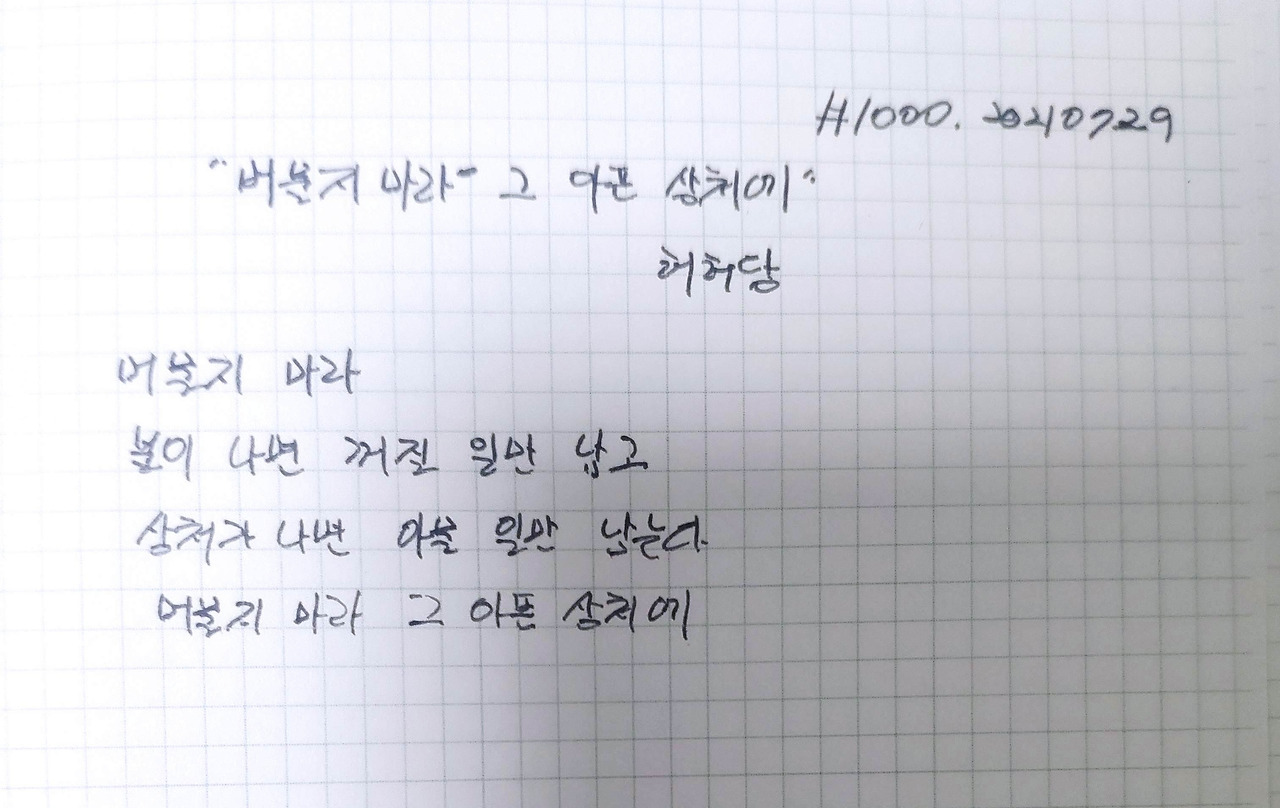 #1000. 20210729
"머물지 마라- 그 아픈 상처에"
허허당
머물지 마라
불이 나면 꺼질 일만 남고
상처가 나면 아물 일만 남는다
머물지 마라 그 아픈 상처에